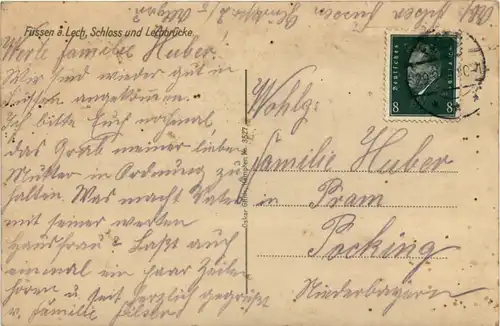 Füssen a. Lech, Schloss und Lechbrücke
Werte Familie Huber!
Wir sind wieder gut in
Füssen angekommen.
Ich bitte Euch nochmal
das Grab meiner lieben
Mutter in Ordnung zu
halten. Was macht Vater
mit seiner werten
Hausfrau? Laßt auch
einmal ein paar Zeilen
hören u. seit herzlich gegrüßt
v. Familie
Wohlg:
Familie Huber
in Pram
Pocking
Niederbayern
Deutsches Reich
8 8